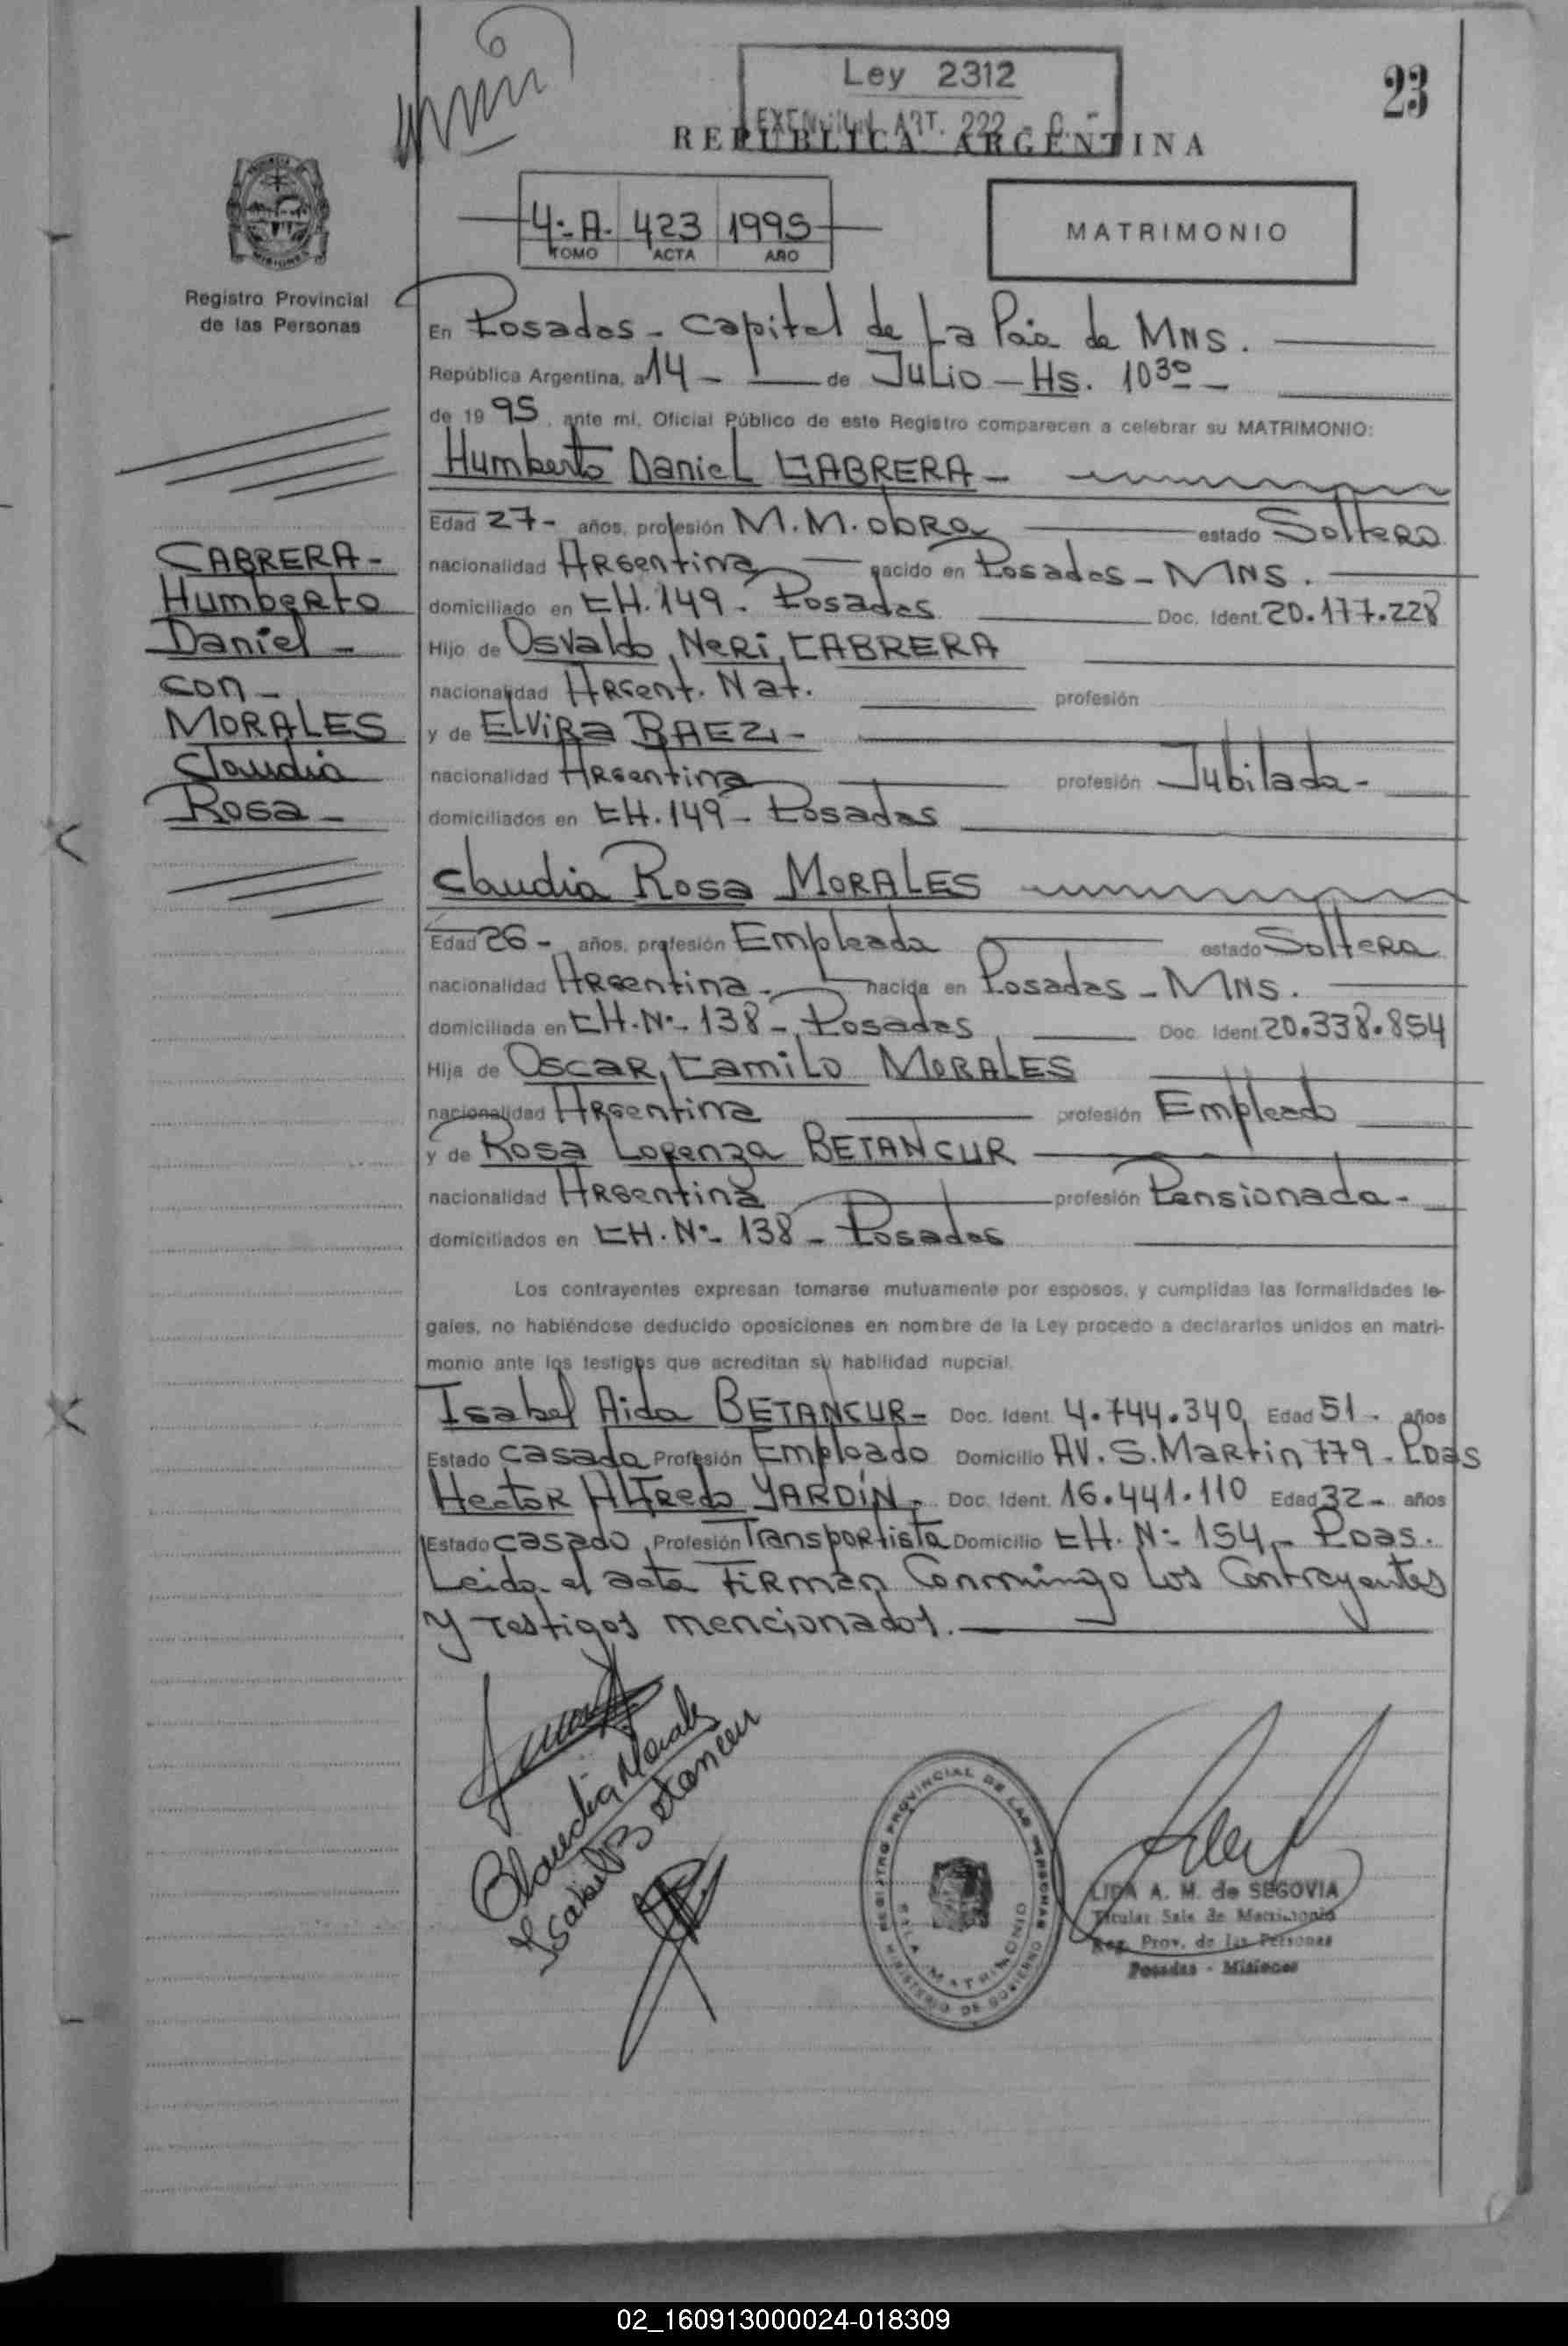 Ley 2312
EXENCION ART. 222
23
REPUBLICA ARGENTINA
4º-A. 423 1995
TOMO ACTA AÑO
MATRIMONIO
Registro Provincial
de las Personas
En Posadas - Capital de La Pcia de MNS.
República Argentina, a 14 - de Julio - Hs. 10³⁰ -
de 19 95, ante mí, Oficial Público de este Registro comparecen a celebrar su MATRIMONIO:
Humberto Daniel CABRERA -
Edad 27 - años, profesión M.M. obra estado Soltero
nacionalidad Argentina nacido en Posadas - MNS.
domiciliado en CH. 149 - Posadas Doc. Ident. 20.177.228
Hijo de Osvaldo Neri CABRERA
nacionalidad Argent. Nat. profesión
y de Elvira BAEZ -
nacionalidad Argentina profesión Jubilada -
domiciliados en CH. 149 - Posadas
CABRERA -
Humberto
Daniel -
con -
MORALES
Claudia
Rosa -
Claudia Rosa MORALES
Edad 26 - años, profesión Empleada estado Soltera
nacionalidad Argentina - nacida en Posadas - MNS.
domiciliada en CH. Nº - 138 - Posadas Doc. Ident. 20.338.854
Hija de Oscar Camilo MORALES
nacionalidad Argentina profesión Empleado
y de Rosa Lorenza BETANCUR
nacionalidad Argentina profesión Pensionada -
domiciliados en CH. Nº - 138 - Posadas
Los contrayentes expresan tomarse mutuamente por esposos, y cumplidas las formalidades le-
gales, no habiéndose deducido oposiciones en nombre de la Ley procedo a declararlos unidos en matri-
monio ante los testigos que acreditan su habilidad nupcial.
Isabel Aida BETANCUR - Doc. Ident. 4.744.340 Edad 51 - años
Estado casada Profesión Empleado Domicilio AV. S. Martin 779 - Pdas
Hector Alfredo YARDÍN - Doc. Ident. 16.441.110 Edad 32 - años
Estado casado, Profesión Transportista Domicilio CH. Nº 154 - Pdas.
Leida el acta Firman Conmingo los Contrayentes
y testigos mencionados.
Claudia Morales
Isabel B etancur
REGISTRO PROVINCIAL DE LAS PERSONAS
SALA MATRIMONIO
MINISTERIO DE GOBIERNO
LIDA A. M. de SEGOVIA
Titular Sala de Matrimonio
Reg. Prov. de las Personas
Posadas - Misiones
02_160913000024-018309